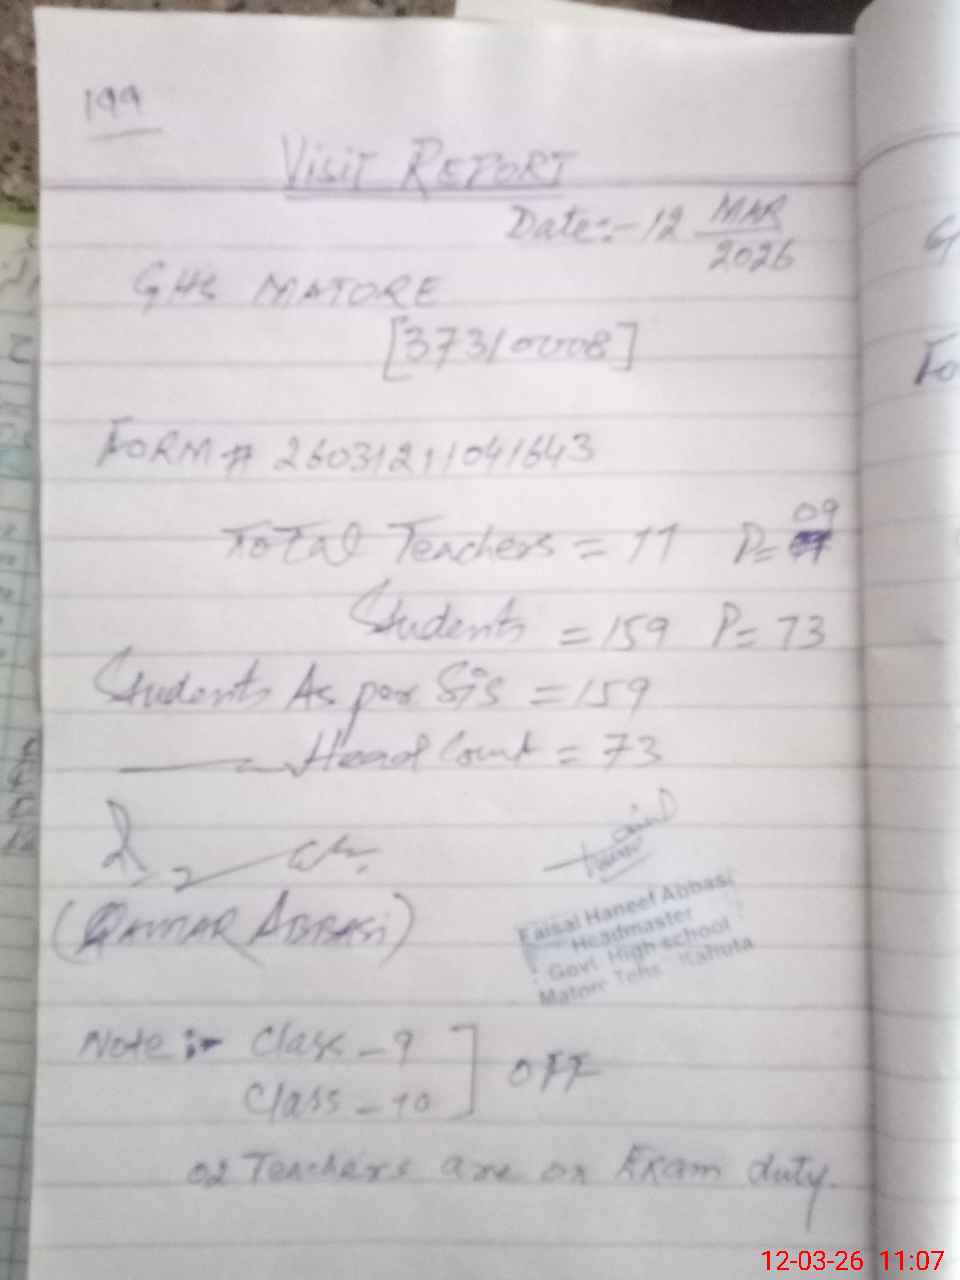 199
Visit REPORT
Date:- 12 MAR
2026
GHS MATORE
[37310008]
FORM # 26031211041643
Total Teachers = 11 P= 09
Students = 159 P= 73
Students As per Sis = 159
Head Count = 73
(QAMAR ABBASI)
Faisal Haneef Abbasi
Headmaster
Govt. High school
Matore Teh: Kahuta
Note :- Class - 9
Class - 10
OFF
02 Teachers are on Exam duty.
12-03-26 11:07